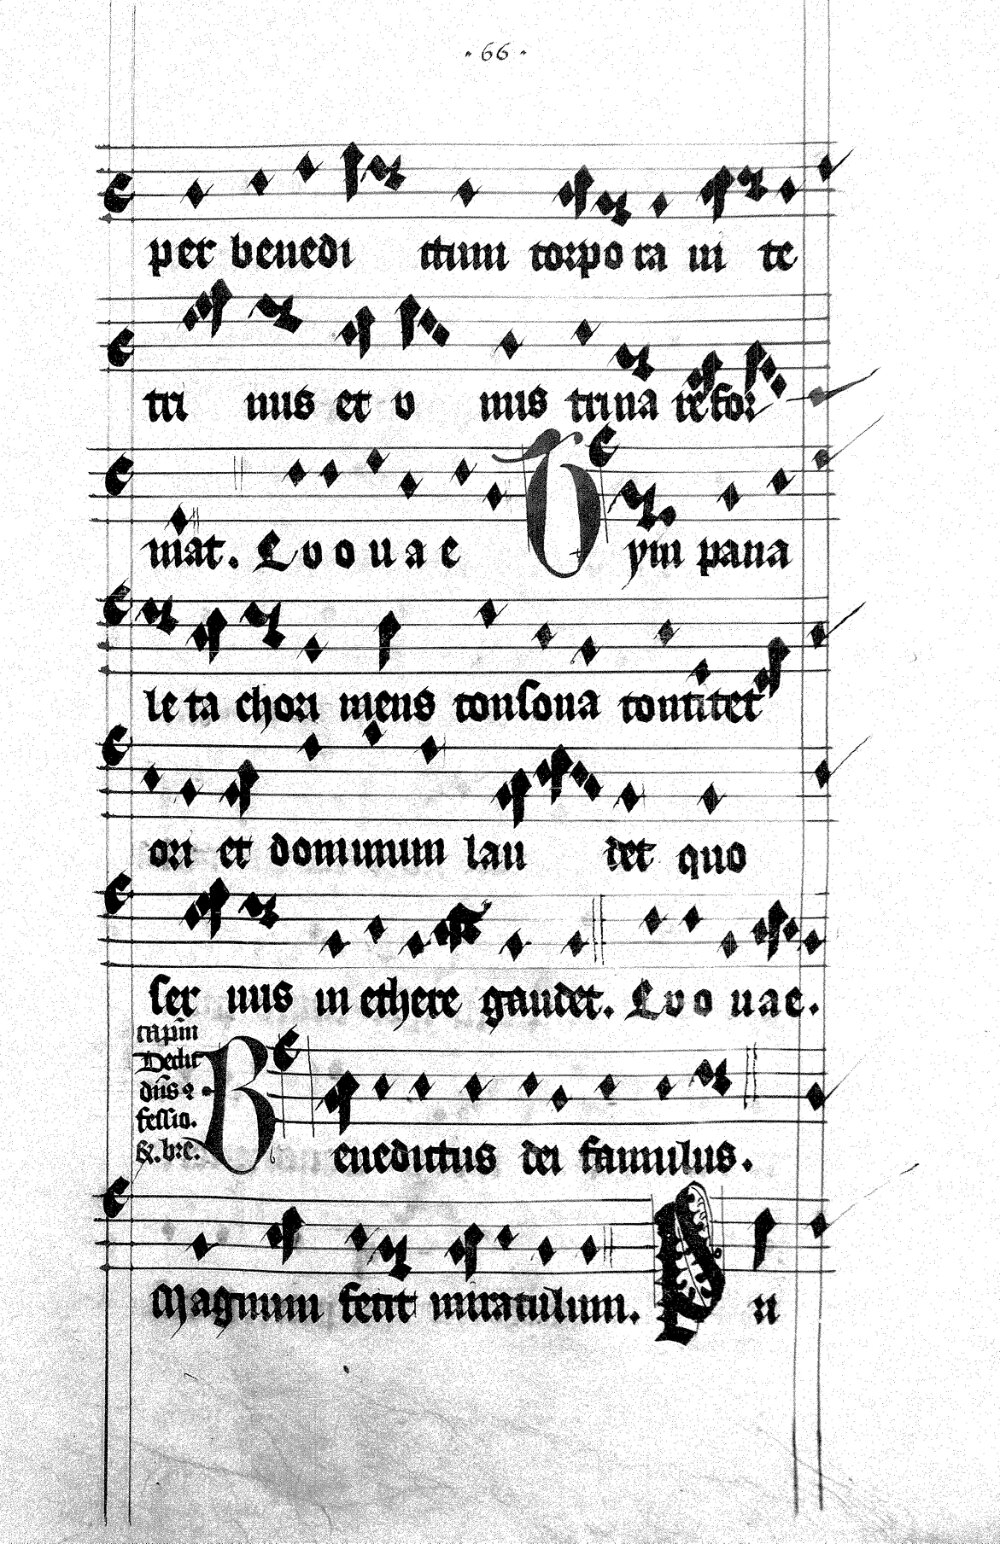 · 66 ·
per benedi ctum corpo ra in te
tri nus et v nus trina refor
mat. Evouae Tym pana
le ta chori mens consona concitet
ori et dominum lau det quo
ser uus in ethere gaudet. Evouae.
cap̄m
Dedit
dn̄s ꝯ
fessio.
&.br̄e.
Benedictus dei famulus.
Magnum fecit miraculum. Pri